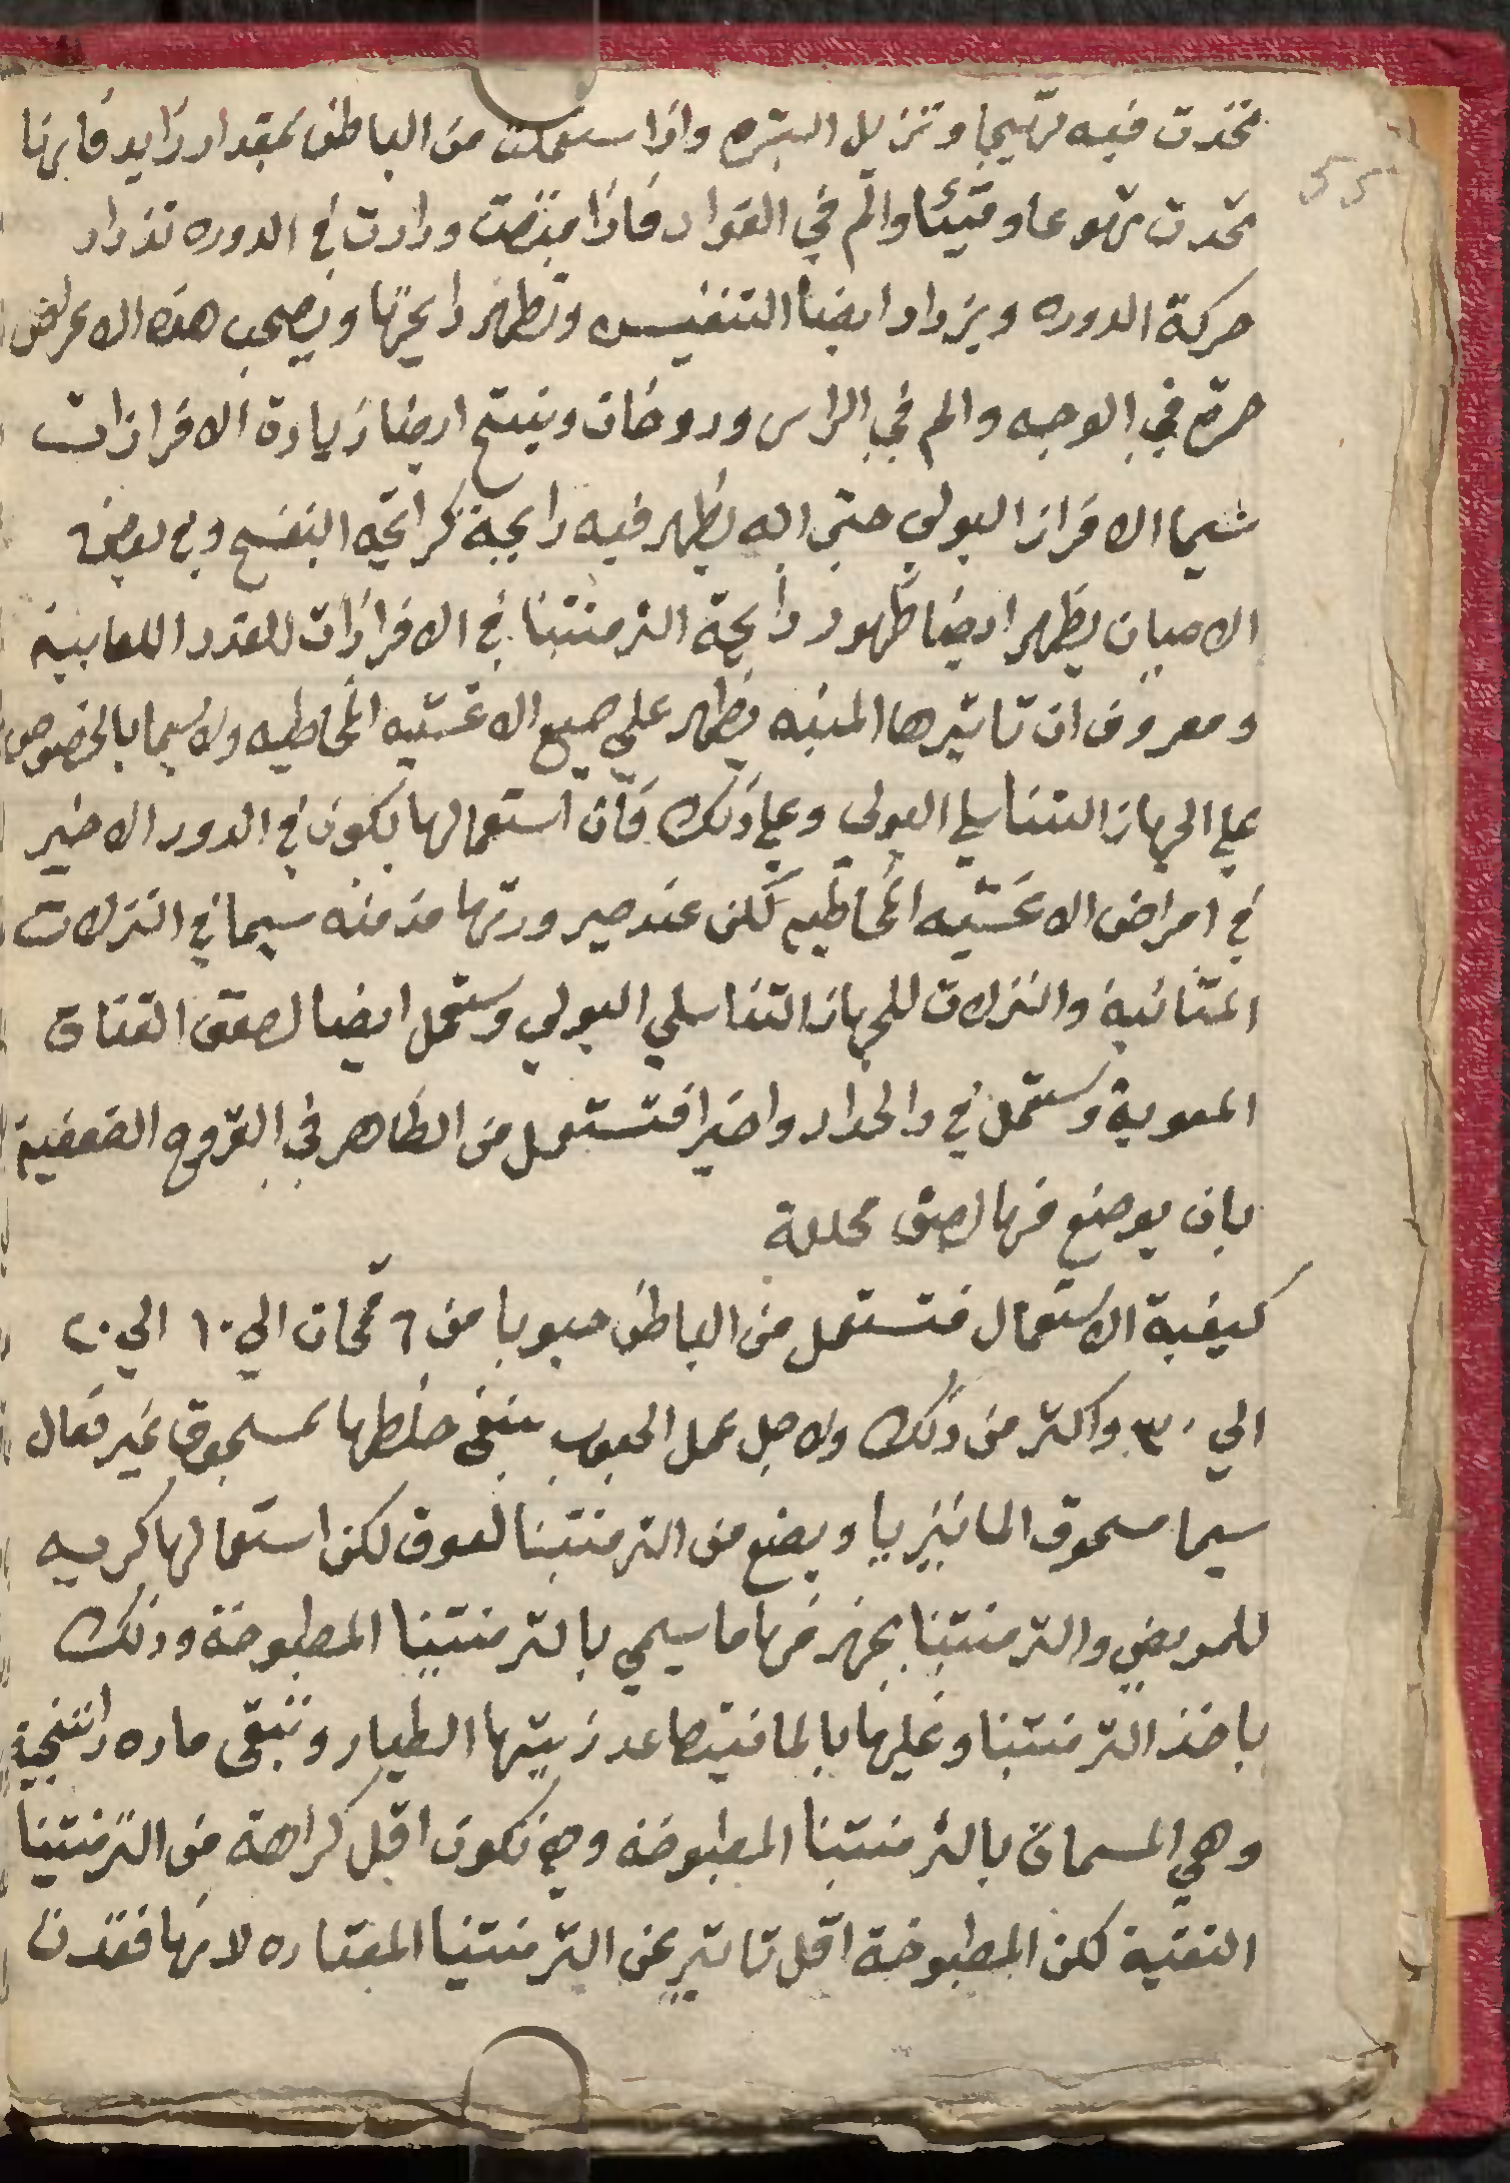 تحدت فيه تهيجا وتزيل البشره واذا استعملت من الباطن بمقدار زايد فانها
55
تحدت تهوعا وقيئا والم في الفواد فاذا امتصت ودارت في الدوره تزداد
حركة الدوره ويزداد ايضا التنفيس وتظهر رايحتها ويصحب هذه الاعراض
حرة في الوجه والم في الراس ودوخان وينتج ايضا زيادة الافرازات
سيما الافراز البولي حتى انه يظهر فيه رايحة كرائحة البنفسج وفي بعض
الاحيان يظهر ايضا ظهور رايحة الترمنتينا في الافرازات للغدد اللعابية
ومعروف ان تاثيرها المنبه يظهر على جميع الاغشيه المخاطيه ولاسيما بالخصوص
على الجهاز التناسلي البولي وعلى ذلك فان استعمالها يكون في الدور الاخير
في امراض الاغشيه المخاطيه لكن عند صيرورتها مزمنه سيما في النزلات
المثانية والنزلات للجهاز التناسلي البولي وتستعمل ايضا لصعق القناة
المعوية وتستعمل في دا الحدار واخيرا فتستعمل من الظاهر في القروح الضعفية
بان يوضع منها لصق محللة
كيفية الاستعمال فتستعمل من الباطن حبوبا من ٦ قمحات الي ١٠ الي ٢٠
الي ٣٠ واكثر من ذلك ولاجل عمل الحبوب ينبغى خلطها بمسحوق غير فعال
سيما مسحوق المانيزيا ويصنع من الترمنتينا لعوق لكن استعمالها كريه
للمريض والترمنتينا يجهز منها ما يسمي بالترمنتينا المطبوخة وذلك
باخذ الترمنتينا وغليها بالما فيتصاعد زيتها الطيار وتبقى ماده راتنجية
وهي المسماة بالترمنتينا المطبوخة وهي تكون اقل كراهة من الترمنتينا
النقية لكن المطبوخة اقل تاتير عن الترمنتينا المعتاده لانها فقدت